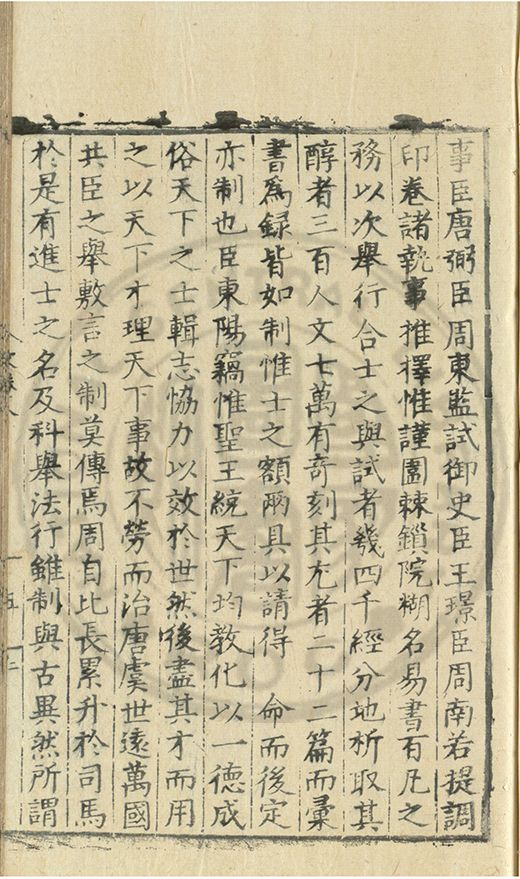 事臣唐弼臣周東監試御史臣王璟臣周南若提調
印卷諸執事推擇惟謹圍棘鎖院糊名易書有凡之
務以次舉行合士之與試者幾四千經分地析取其
醇者三百人文七萬有奇刻其尤者二十二篇而彙
書為錄皆如制惟士之額兩具以請得　命而後定
亦制也臣東陽竊惟聖王統天下均教化以一德成
俗天下之士輯志恊力以效於世然後盡其才而用
之以天下才理天下事故不勞而治唐虞世遠萬國
共臣之舉敷言之制莫傳焉周自比長累升於司馬
於是有進士之名及科舉法行雖制與古異然所謂